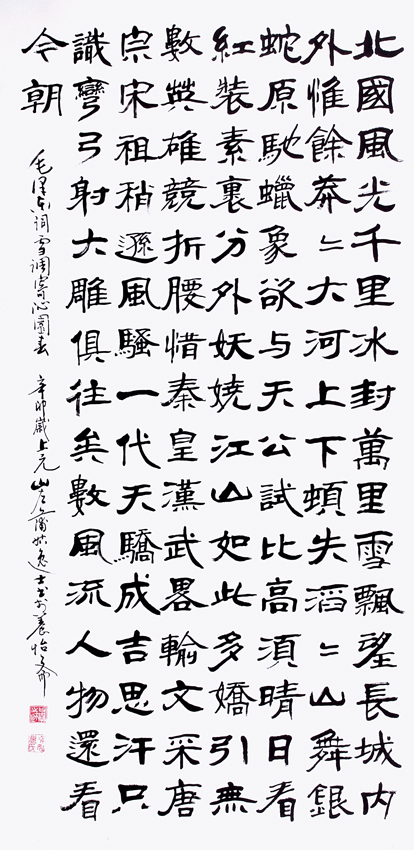 北國風光千里冰封萬里雪飄望長城内
外惟餘莽〻大河上下頓失滔〻山舞銀
蛇原馳蠟象欲与天公試比高須晴日看
紅裝素裹分外妖嬈江山如此多嬌引無
數英雄競折腰惜秦皇漢武畧輸文采唐
宗宋祖稍遜風騷一代天驕成吉思汗只
識彎弓射大雕俱往矣數風流人物還看
今朝
毛澤东詞雪調寄沁園春 辛卯歲上元 山左逸士书於養怡斋